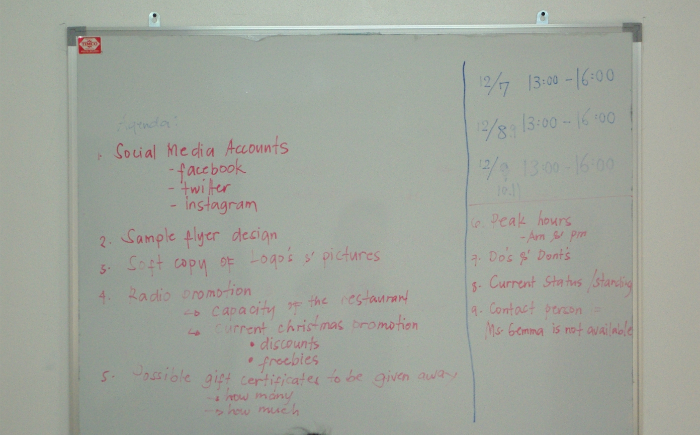 Agenda:
1. Social Media Accounts
- facebook
- twitter
- instagram
2. Sample flyer design
3. Soft copy of Logo's & pictures
4. Radio promotion
↳ capacity of the restaurant
↳ current christmas promotion
• discounts
• freebies
5. Possible gift certificates to be given away
→ how many
→ how much
12/7 13:00 - 16:00
12/8 13:00 - 16:00
12/9 13:00 - 16:00
6. Peak hours
- Am & pm
7. Do's & Dont's
8. Current Status / standing
9. Contact person =
Ms. Gemma is not available